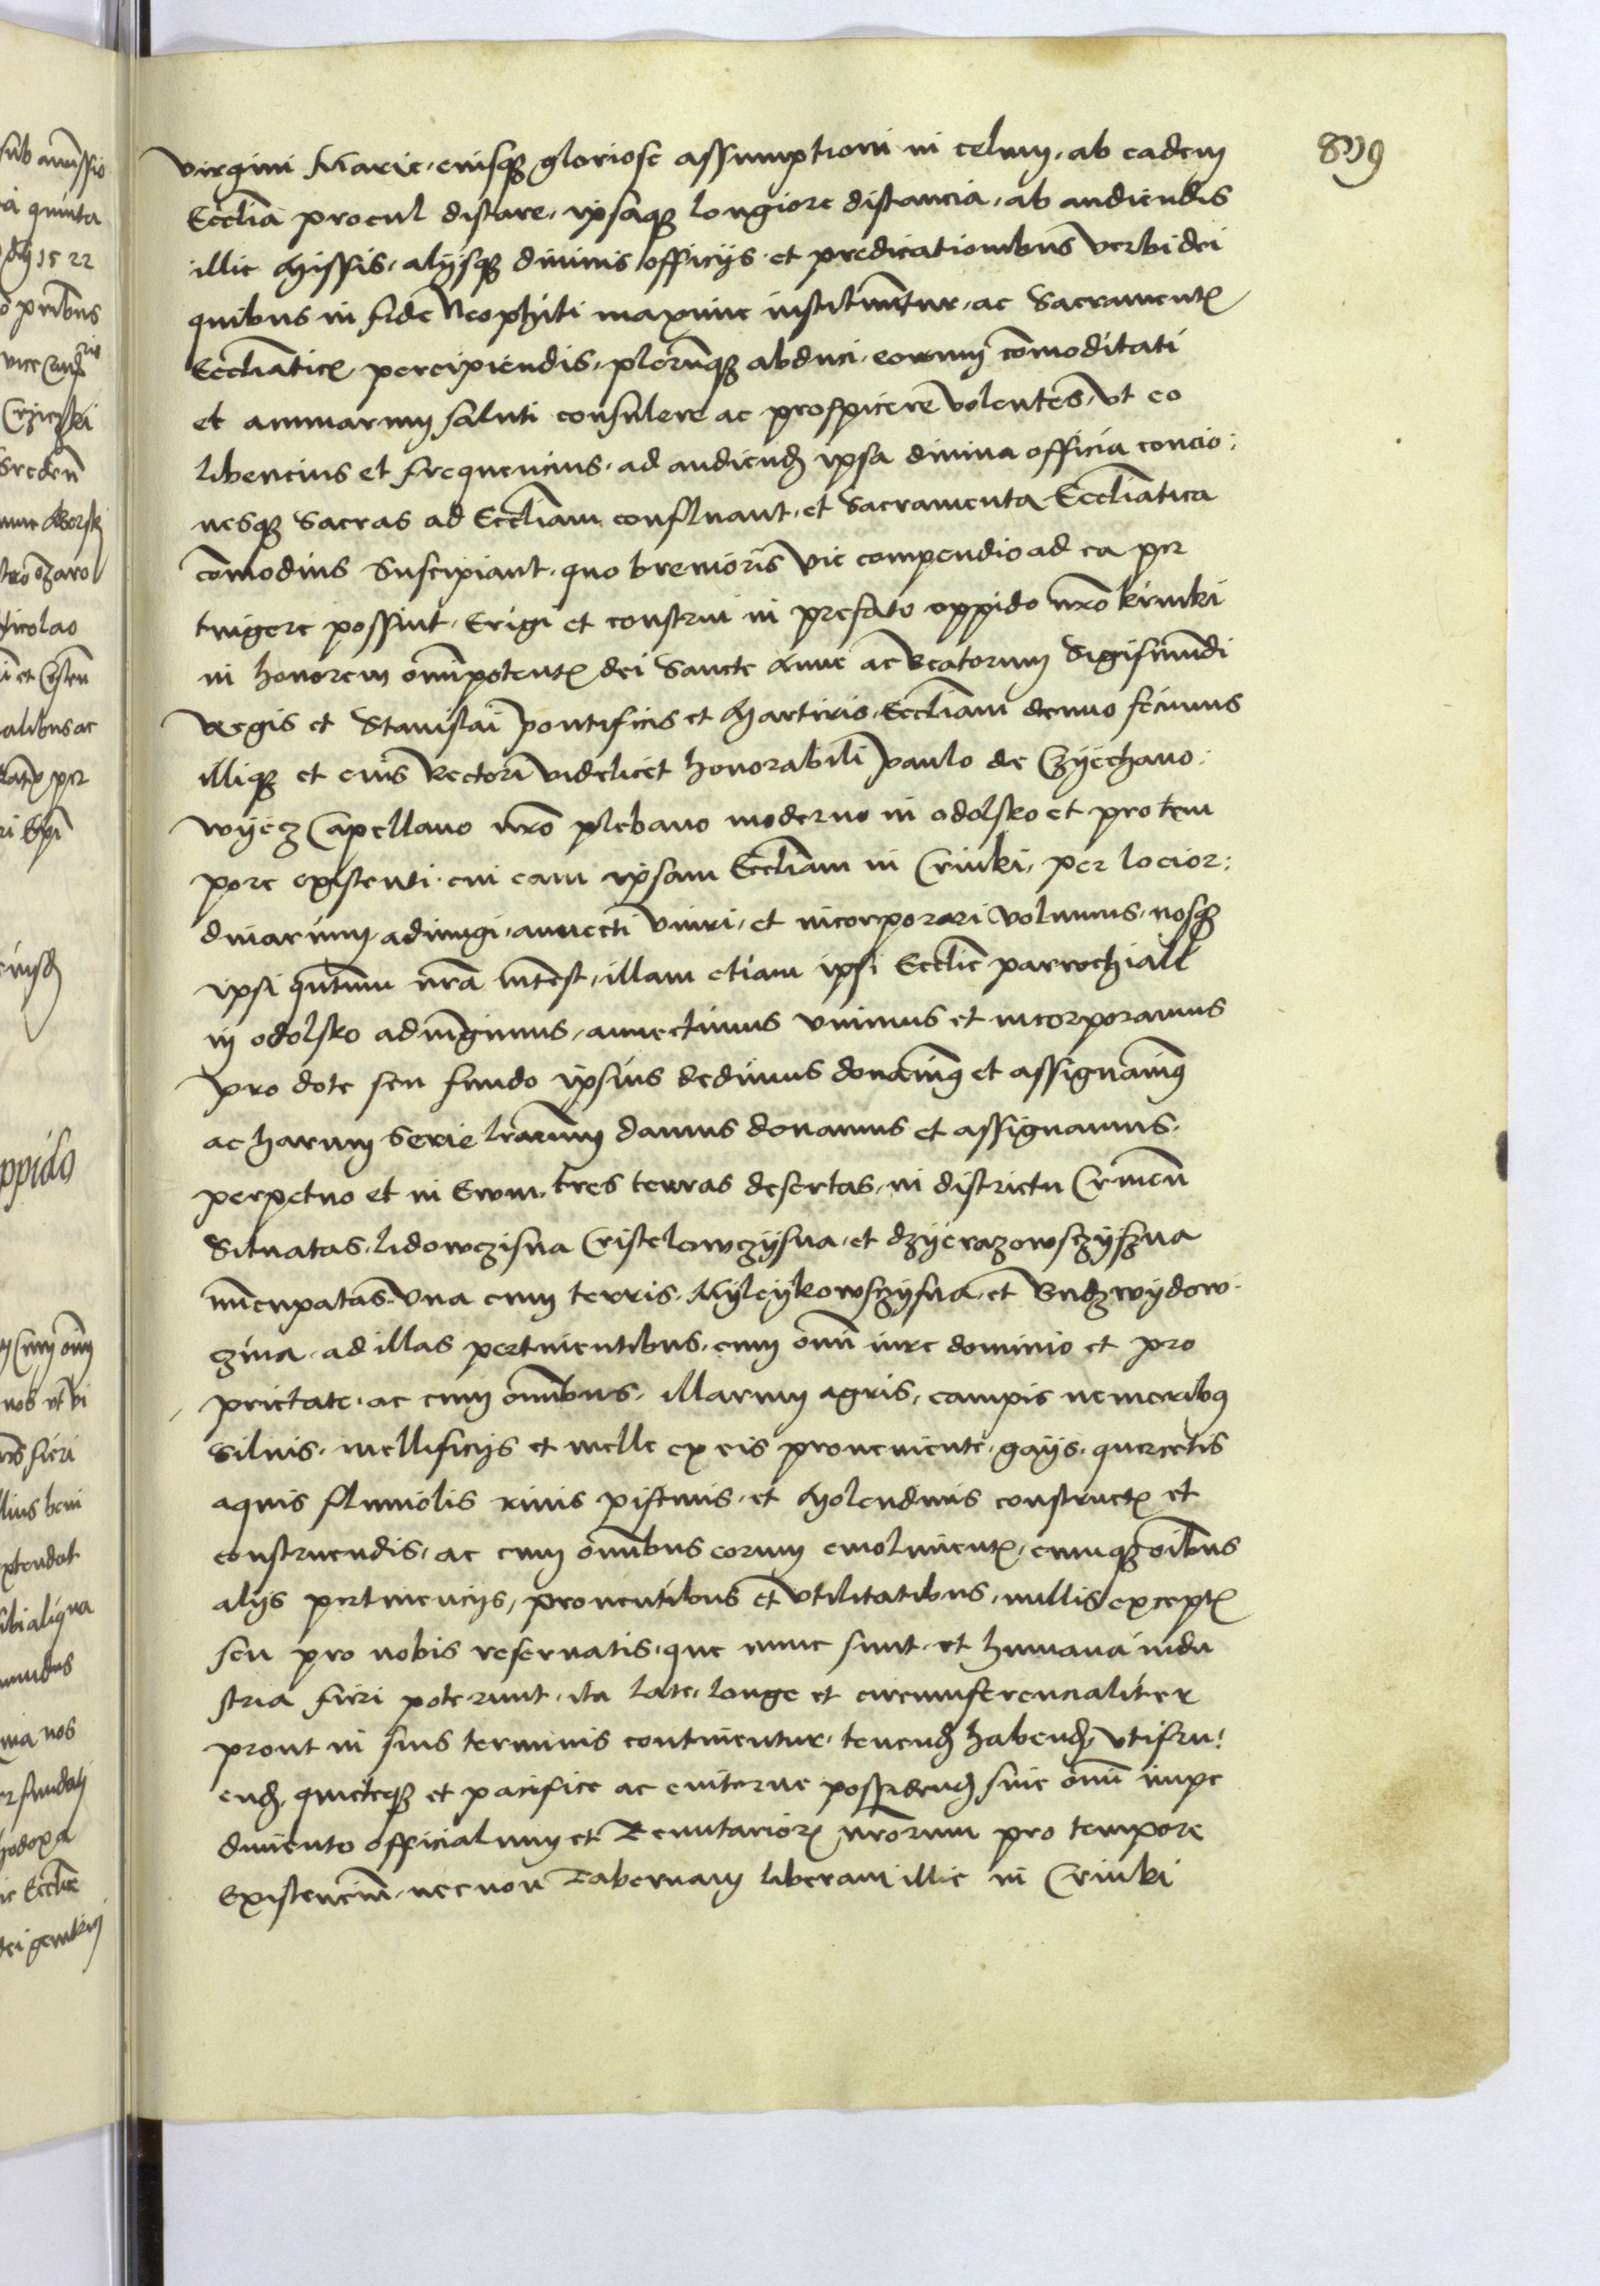 virgini Marie, eiusq3 gloriose assumptioni in celum, ab eadem
Eccliā procul distare, ipsaq3 longiore distancia, ab audiendis
illic Missis, alijsq3 diuinis officijs et predicationibus verbi dei
quibus in fide Neophiti maxime instituūtur, ac Sacrament
Eccliatic percipiendis, plerūq3 abduci, eorum comoditati
et animarum saluti consulere ac prospicere volentes, vt eo
libencius et frequencius, ad audiend ipsa diuina officia concio:
nesq3 Sacras ad Eccliam confluant, et Sacramenta Eccliatica
comodius Suscipiant, quo breuioris vie compendio ad ea per
tingere possint, Erigi et construi in prefato oppido nrō krinki
in honorem omipotent dei Sancte Anne ac Beatorum Sigismūdi
Regis et Stanislai pontificis et Martiris, Eccliam denuo fecimus
illiq3 et eius Rectori videlicet honorabili paulo de Czyechano:
wyecz Capellano nrō plebano moderno in odolsko et pro tem
pore existenti, cui eam ipsam Eccliam in Crinki, per loci or:
dinarium, adiungi, annecti vniri, et incorporari volumus, nosq3
ipsi qntum nrā interest, illam etiam ipsi Ecclie parrochiali
in odolsko adiūgimus, annectimus vnimus et incorporamus
pro dote seu fundo ipsius dedimus donauimus et assignauimus
ac harum Serie lrarum damus donamus et assignamus,
perpetuo et in Ewm, tres terras desertas, in districtu Crinen
Situatas, lidowczisna Cristelowczysna, et dzyerazowsczyszna
nūcupatas, Vna cum terris, Myleykowsczysna, et Budzwydow:
czina, ad illas pertinentibus, cum omi iure dominio et pro
prietate, ac cum omibus, illarum agris, campis nemoribus
Siluis, mellificijs et melle ex eis proueniente, gays, quercetis
aquis fluuiolis riuis piscinis, et Molendinis construct et
construendis, ac cum omibus eorum emolument, cumq3 oibus
alijs pertinencijs, prouentibus et vtilitatibus, nullis except
seu pro nobis reseruatis, que nunc sunt, et humana indu
stria fieri poterunt, ita late, longe et circumferencialiter
prout in suis terminis continentur, tenend habend, vtifru:
end, quieteq3 et pacifice ac euiterne possidend sine omi impe
dimento officialium et Tenutarior nrorum pro tempore
Existencium, necnon Tabernam liberam illic in Crinki